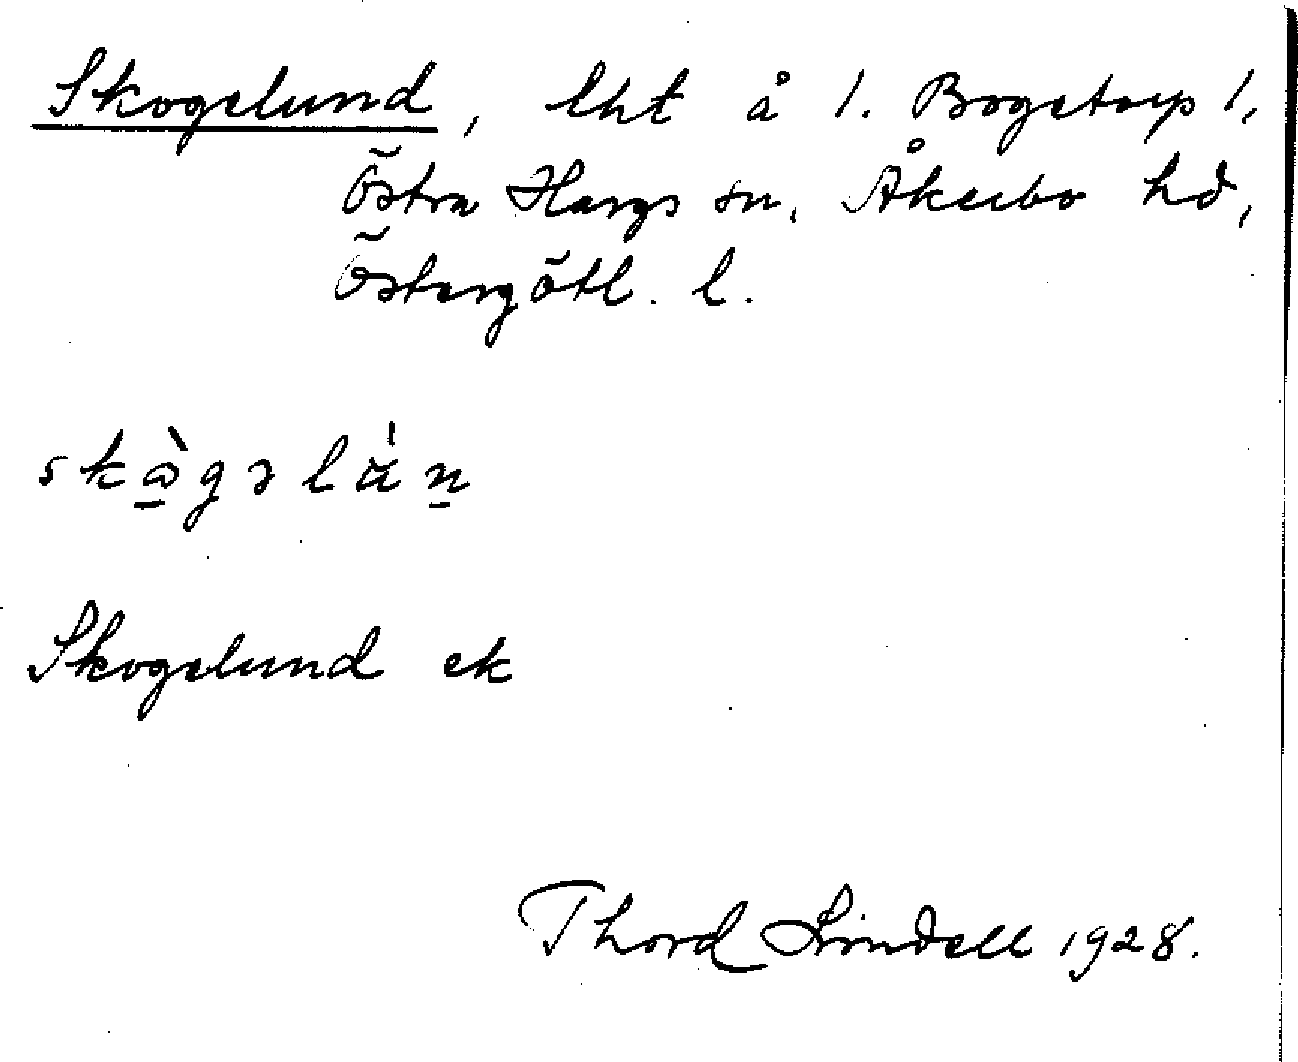 Skogelund, lht å 1. Bogetorp 1,
Östra Hargs sn, Åkerbo hd,
Östergötl. l.
skògəlán
Skogelund ek
Thord Lindell 1928.